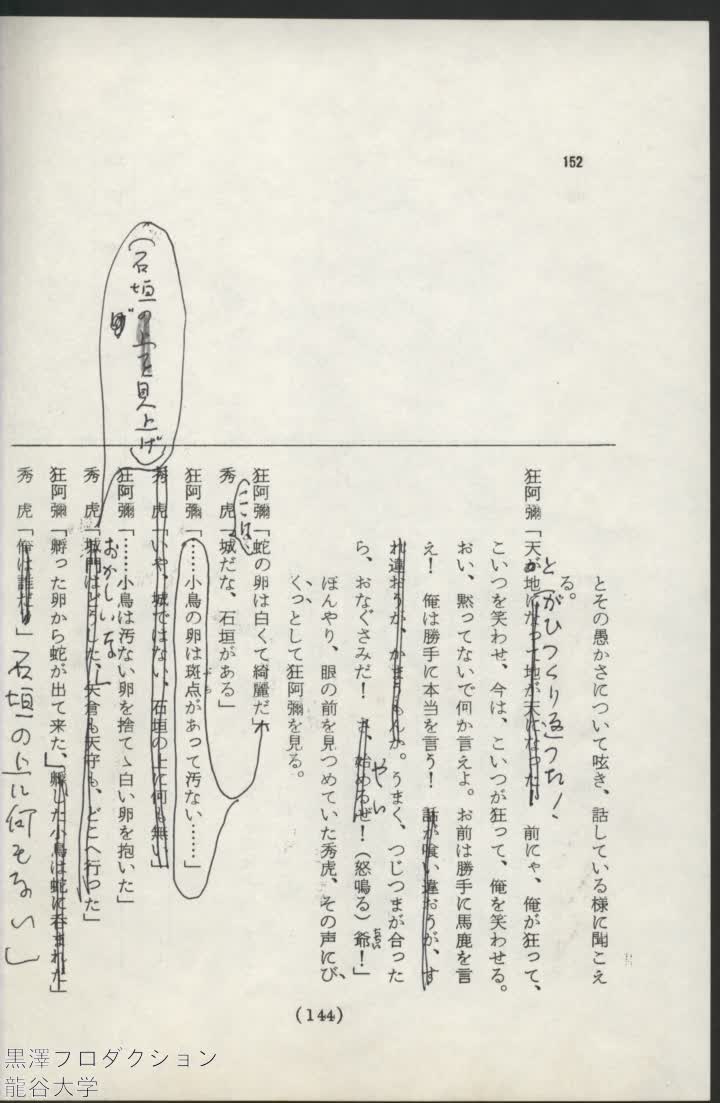 152
とその愚かさについて呟き、話している様に聞こえ
る。
狂阿彌「天が地になって地が天になった！　前にゃ、俺が狂って、
とがひっくり返ったー！
こいつを笑わせ、今は、こいつが狂って、俺を笑わせる。
おい、黙ってないで何か言えよ。お前は勝手に馬鹿を言
え！　俺は勝手に本当を言う！　話が喰い違おうが、す
れ違おうが、かまうもんか。うまく、つじつまが合った
ら、おなぐさみだ！　さ、始めるぜ！（怒鳴る）爺！」
やい
じじい
ぼんやり、眼の前を見つめていた秀虎、その声にび
くっとして狂阿彌を見る。
狂阿彌「蛇の卵は白くて綺麗だ」
ここは
秀　虎「城だな、石垣がある」
狂阿彌「……小鳥の卵は斑点があって汚ない……」
秀　虎「いや、城ではない、石垣の上に何も無い」
（石垣の上を見上げ）
狂阿彌「……小鳥は汚ない卵を捨てゝ白い卵を抱いた」
おかしいな
秀　虎「城門はどうした、矢倉も天守も、どこへ行った」
狂阿彌「孵った卵から蛇が出て来た、孵した小鳥は蛇に呑まれた」
秀　虎「俺は誰だ！」
石垣の上に何もない」
(144)
黒澤プロダクション
龍谷大学